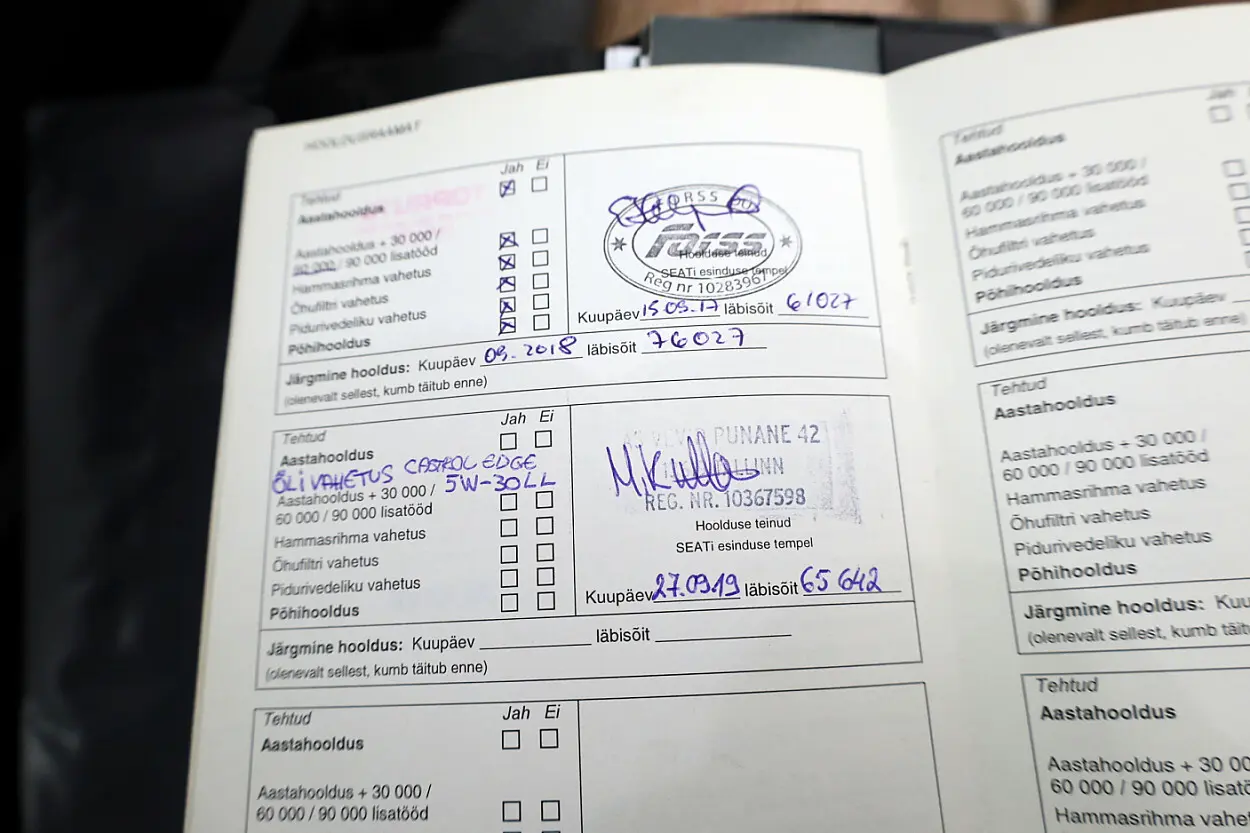 HOOLDUSRAAMAT
Tehtud
Jah Ei
Aastahooldus
Aastahooldus + 30 000 /
60 000 / 90 000 lisatööd
Hammasrihma vahetus
Õhufiltri vahetus
Pidurivedeliku vahetus
Põhihooldus
FORSS OÜ
Forss
Hoolduse teinud
SEATi esinduse tempel
Reg nr 10283967
Kuupäev 15.09.17 läbisõit 61027
Järgmine hooldus: Kuupäev 09.2018 läbisõit 76027
(olenevalt sellest, kumb täitub enne)
Tehtud
Jah Ei
Aastahooldus
ÕLIVAHETUS CASTROL EDGE
5W-30LL
Aastahooldus + 30 000 /
60 000 / 90 000 lisatööd
Hammasrihma vahetus
Õhufiltri vahetus
Pidurivedeliku vahetus
Põhihooldus
PUNANE 42
REG. NR. 10367598
Hoolduse teinud
SEATi esinduse tempel
Kuupäev 27.09.19 läbisõit 65 642
Järgmine hooldus: Kuupäev läbisõit
(olenevalt sellest, kumb täitub enne)
Tehtud
Jah Ei
Aastahooldus
Aastahooldus + 30 000 /
60 000 / 90 000 lisatööd
Tehtud
Jah
Aastahooldus
Aastahooldus + 30 000 /
60 000 / 90 000 lisatööd
Hammasrihma vahetus
Õhufiltri vahetus
Pidurivedeliku vahetus
Põhihooldus
Järgmine hooldus: Kuupäev
(olenevalt sellest, kumb täitub enne)
Tehtud
Aastahooldus
Aastahooldus + 30 000 /
60 000 / 90 000 lisatööd
Hammasrihma vahetus
Õhufiltri vahetus
Pidurivedeliku vahetus
Põhihooldus
Järgmine hooldus: Kuu
(olenevalt sellest, kumb täitub
Tehtud
Aastahooldus
Aastahooldus + 30 00
60 000 / 90 000 lisatö
Hammasrihma vahe